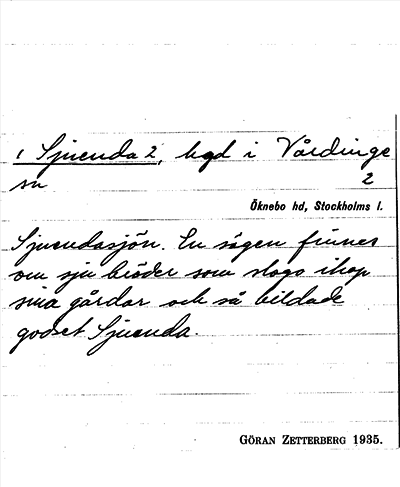 1 Sjuenda 2, bgd i Vårdinge
sn 2
Öknebo hd, Stockholms l.
Sjuendasjön. En sägen finnes
om sju bröder som slogo ihop
sina gårdar och så bildade
godset Sjuenda.
GÖRAN ZETTERBERG 1935.